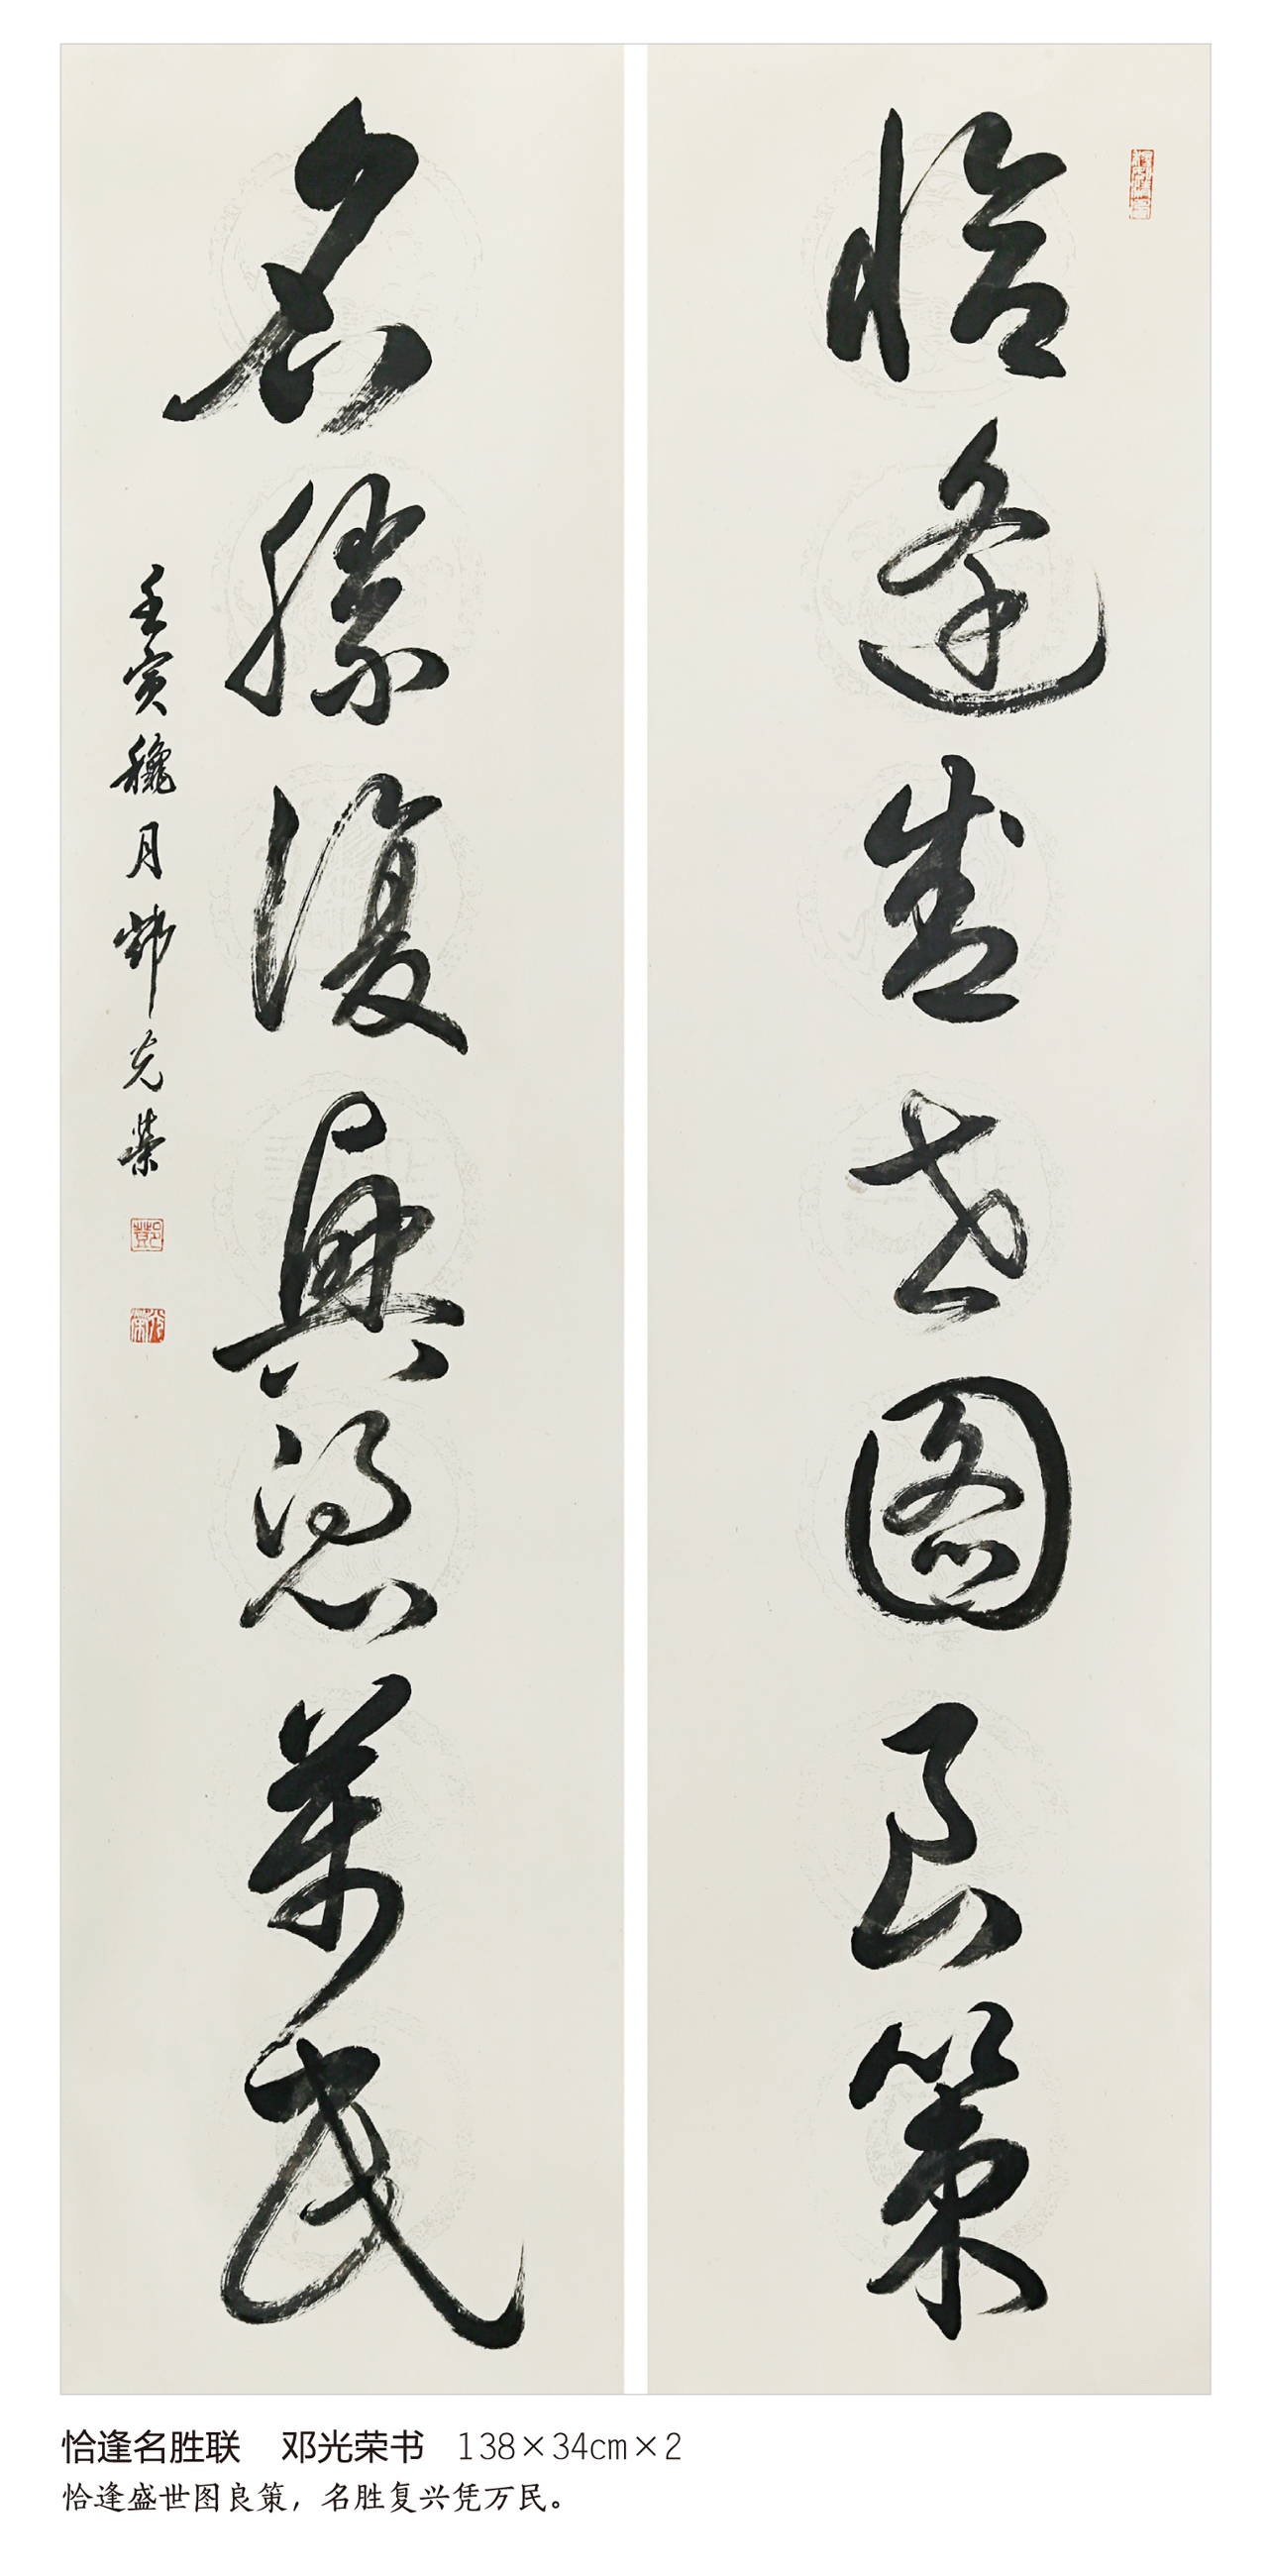 恰逢盛世图良策
名勝復興凭萬民
壬寅龝月鄧光榮
恰逢名胜联 邓光荣书 138×34cm×2
恰逢盛世图良策，名胜复兴凭万民。